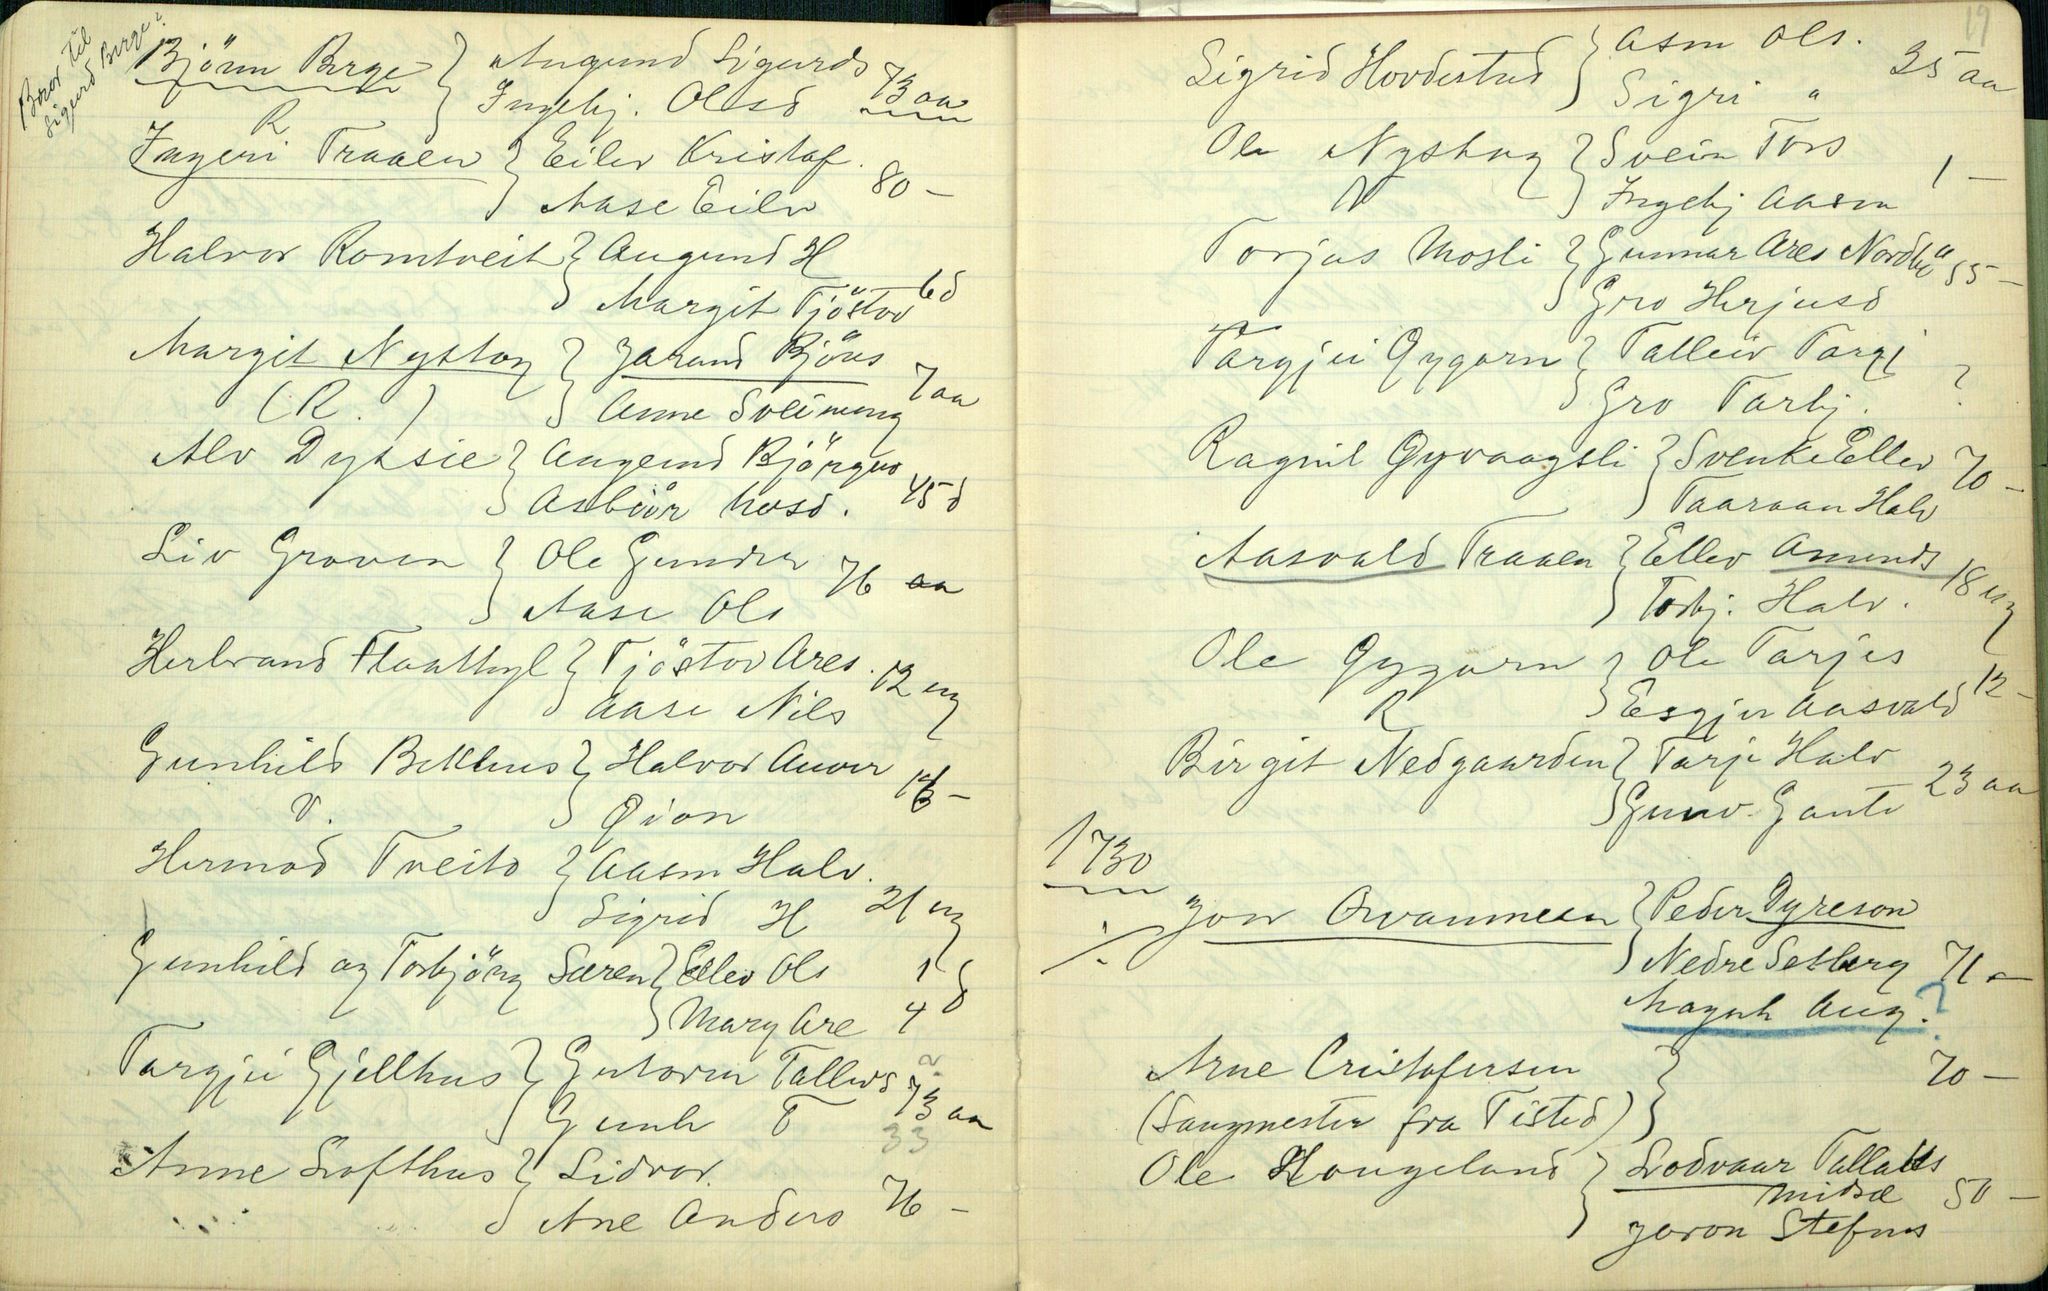 Bror til
Sigurd Berge?
Björn Berge } Augund Sigurds
R Ingebj. Olsd 73 aa
Ingeri Traaen } Eilev Kristof.
Aase Eilev 80 —
Halvor Romtveit } Augund H
Margit Tjöstov 6 d
Margit Nystog } Jarand Björns
(R.) Anne Sveinung 7 aa
Alv Dyrsie } Augund Björguv
Asbiör Mosd. 45 d
Liv Groven } Ole Gunder
Aase Ols 76 aa
Herbrand Flaathyl } Tjöstov Ares. 12 ug
Aase Nils
Gunhild Bekhus } Halvor Auver
V. Gion —
Hermod Tveito } Aasm Halv.
Sigrid H 21 ug
Gunhild og Torbjörg Særen } Ellev Ols 1
Mary Are 4 d
Targjei Gjellhus } Gutorm Tallevs ?
Gunh T 73 aa
33
Anne Lofthus } Lidvor.
Ane Anders 76 —
19
Sigrid Hovdestad } Asm Ols. 35 aa
Sigri "
Ole Nystog } Svein Tors 1 —
N Ingebj Aasm
Torjus Mosli } Gunnar Ares Nordbø 55 —
Gro Herjusd
Targjei Gygarn } Talleiv Targj
Gro Tarbj. ?
Ragnil Gyvaagsli } Svenke Ellev 70 —
Taaraan Halv
Aasvald Traaen } Ellev Amunds 18 ug
Torbj. Halv.
Ole Gygarn } Ole Tarjes
R Esgjer Aasvald 12 —
Birgit Nedgaarden } Tarje Halv 23 aa
Gunv. Gaute
1730
Jon Orvanmeen } Peder Dyreson
Nedre Selberg 71 —
Magnh Aug.?
Arne Cristofersen } 70 —
(Sangmester fra Tisted)
Ole Haugeland } Lodvaar Tallaks
Midsæ 50 —
Joron Stefns